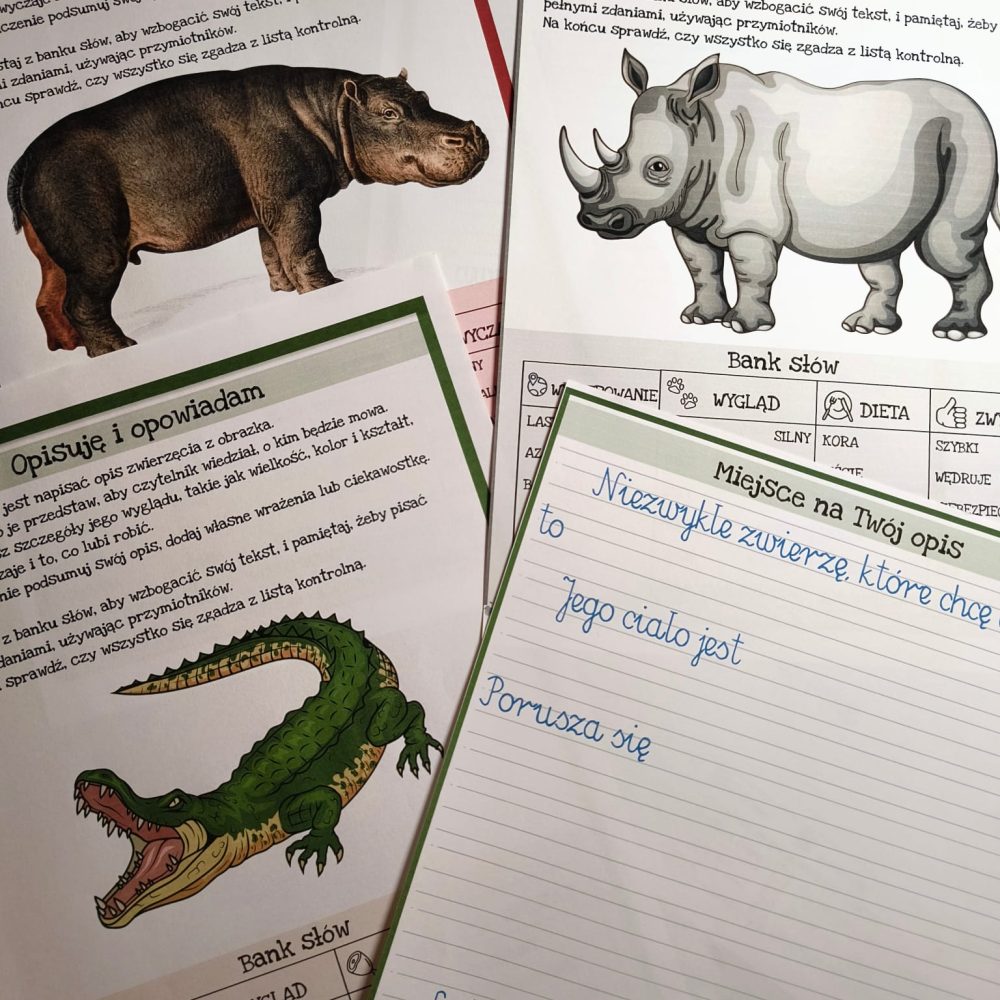 czenie podsumuj swój tekst,
staj z banku słów, aby wzbogacić swój tekst, i
zdaniami, używając przymiotników.
ńcu sprawdź, czy wszystko się zgadza z listą kontrolną.
słów, aby wzbogacić swój tekst, i pamiętaj, żeby
pełnymi zdaniami, używając przymiotników.
Na końcu sprawdź, czy wszystko się zgadza z listą kontrolną.
Bank słów
WYGLĄD
DIETA
SILNY
KORA
SZYBKI
WĘDRUJE
Opisuję i opowiadam
jest napisać opis zwierzęcia z obrazka.
je przedstaw, aby czytelnik wiedział, o kim będzie mowa.
szczegóły jego wyglądu, takie jak wielkość, kolor i kształt,
i to, co lubi robić.
podsumuj swój opis, dodaj własne wrażenia lub ciekawostkę.
z banku słów, aby wzbogacić swój tekst, i pamiętaj, żeby pisać
zdaniami, używając przymiotników.
sprawdź, czy wszystko się zgadza z listą kontrolną.
Bank słów
Miejsce na Twój opis
Niezwykłe zwierzę, które chcę
to
Jego ciało jest
Porusza się